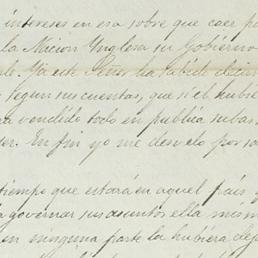 intereses en esa sobre que caer pa
la Nicion Ynglesa su Gobierno
le. Ya este Señor ha sabido decir
segun sus cuentas, que si el hubie
ra vendido todo en publica subas
er. En fin yo me desvelo por so
tiempo que estará en aquel pais y
á governar sus asuntos ella mism
en ninguna parte la hubiera dej